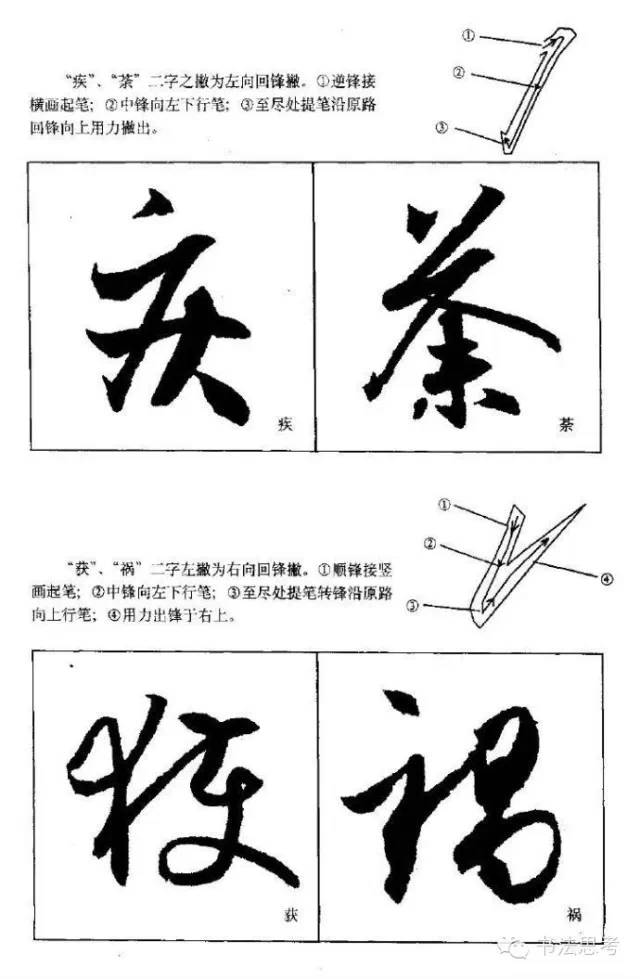 ①
“疾”、“荼”二字之撇为左向回锋撇。①逆锋接
②
横画起笔；②中锋向左下行笔；③至尽处提笔沿原路
③
回锋向上用力撇出。
疾 荼
疾 荼
①
②
“获”、“祸”二字左撇为右向回锋撇。①顺锋接竖
④
画起笔；②中锋向左下行笔；③至尽处提笔转锋沿原路
③
向上行笔；④用力出锋于右上。
獲 禍
获 祸
书法思考